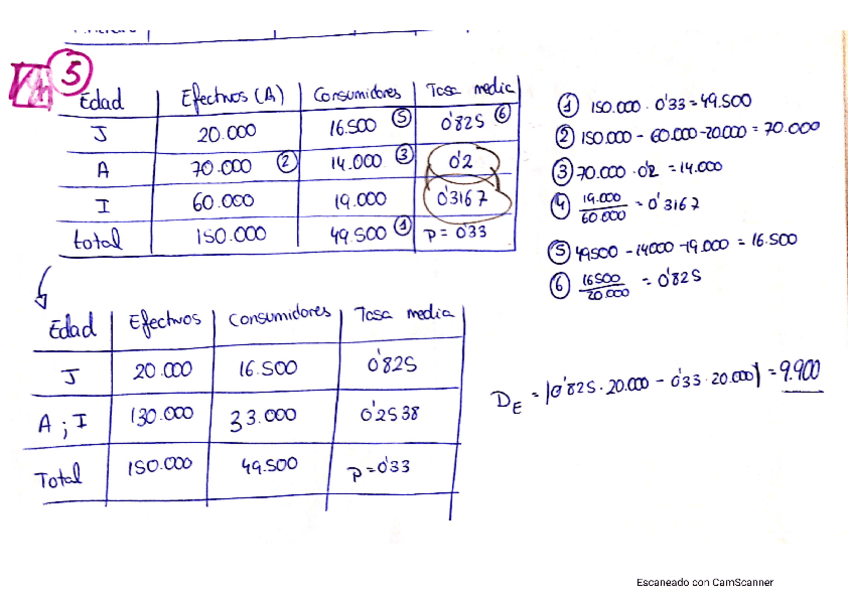 5
Edad Efectivos (A) Consumidores Tasa media
J 20.000 16.500 ⑤ 0'825 ⑥
A 70.000 ② 14.000 ③ 0'2
I 60.000 19.000 0'3167
total 150.000 49.500 ① p = 0'33
① 150.000 · 0'33 = 49.500
② 150.000 - 60.000 - 20.000 = 70.000
③ 70.000 · 0'2 = 14.000
④ 19.000 / 60.000 = 0'3167
⑤ 49500 - 14000 - 19.000 = 16.500
⑥ 16500 / 20.000 = 0'825
Edad Efectivos Consumidores Tasa media
J 20.000 16.500 0'825
A ; I 130.000 33.000 0'2538
Total 150.000 49.500 p = 0'33
D_E = |0'825 · 20.000 - 0'33 · 20.000| = 9.900
Escaneado con CamScanner